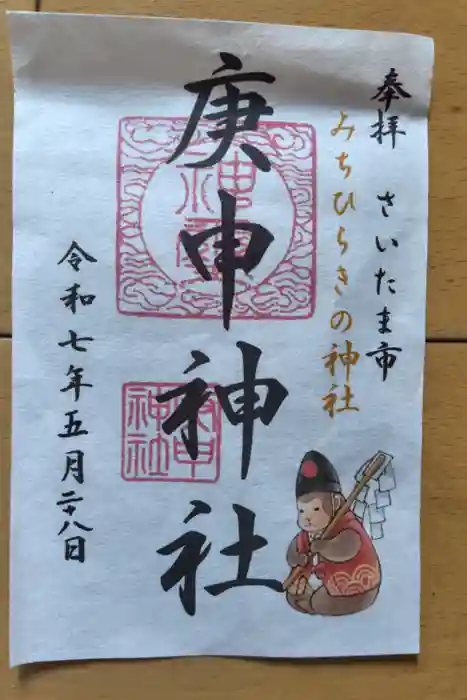 奉拝 さいたま市
みちひらきの神社
庚申神社
令和七年五月二十八日
庚申
神社